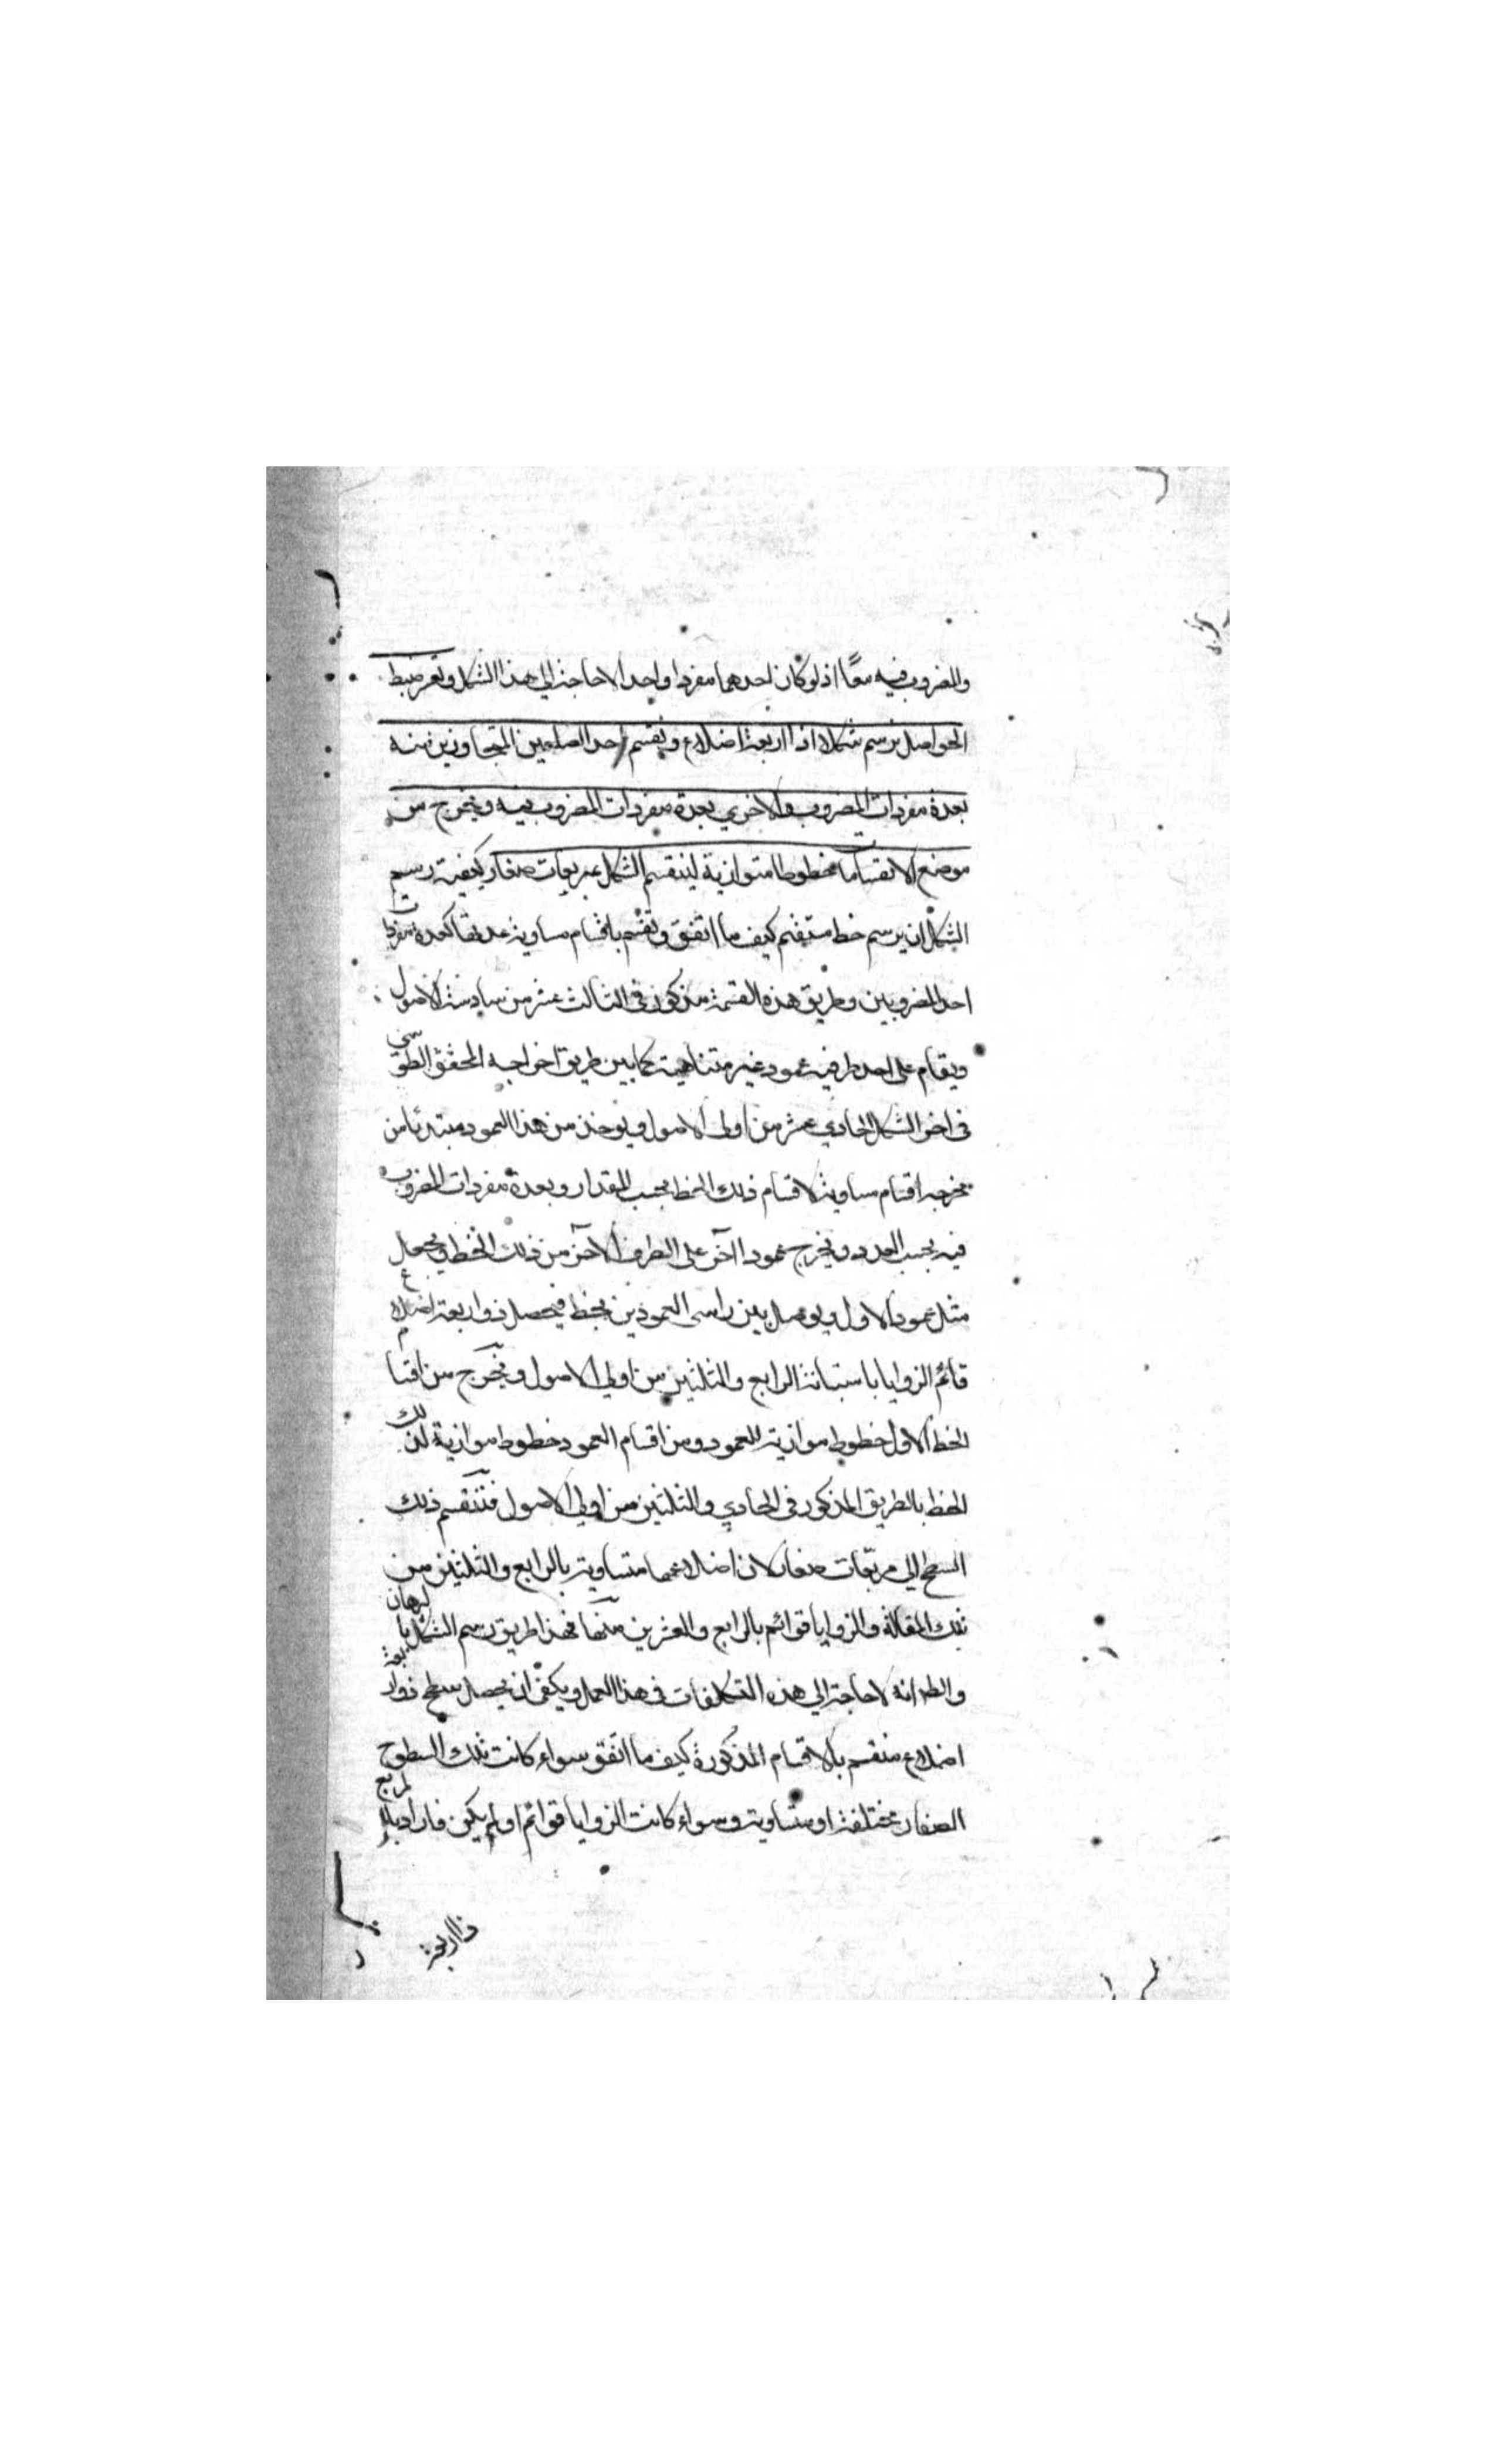 والمضروب فيه معًا اذ لو كان احدهما مفردا واحدا لا حاجة الى هذا الشكل وتعسر ضبط
الحواصل نرسم شكلا ذا اربعة اضلاع ونقسم احد الضلعين المتجاورين منه
بعدة مفردات المضروب والاخرى بعدة مفردات المضروب فيه ونخرج من
موضع الانقسام خطوطا متوازية لينقسم الشكل بمربعات صغار كيفية رسم
الشكل ان يرسم خط مستقيم كيف ما اتفق وتقسم باقسام مساوية عدتها كعدة مفردات
احد المضروبين وطريق هذه القسمة مذكور فى الثالث عشر من سادسة الاصول
ويقام على احد طرفيه عمود غير متناهية كما بين طريق اخراجه المحقق الطوسى
فى اخر الشكل الحادي عشر من اولى الاصول ويوخذ من هذا العمود مبتدئا من
مخرجه اقسام مساوية لاقسام ذلك الخط بحسب المقدار وبعدة مفردات المضروب
فيه بحسب العدد ويخرج عمودا آخر على الطرف الآخر من ذلك الخط ويجعل
مثل عمود الاول ويوصل بين راسى العمودين بخط فيحصل ذو اربعة اضلاع
قائم الزوايا باستبانة الرابع والثلثين من اولى الاصول ونخرج من اقسام
الخط الاول خطوط موازية للعمود ومن اقسام العمود خطوط موازية لذلك
الخط بالطريق المذكور فى الحادي والثلثين من اولى الاصول فتنقسم ذلك
السطح الى مربعات صغار لان اضلاعها متساوية بالرابع والثلثين من
تلك المقالة والزوايا قوائم بالرابع والعشرين منها فهذا طريق رسم الشكل بالبرهان
والظ انه لا حاجة الى هذه التكلفات فى هذا العمل ويكفى ان يحصل سطح ذو اربعة
اضلاع منقسم بالاقسام المذكورة كيف ما اتفق سواء كانت تلك السطوح
الصغار مختلفة او متساوية وسواء كانت الزوايا قوائم او لم يكن فاراد بالمربع
ذا اربعة